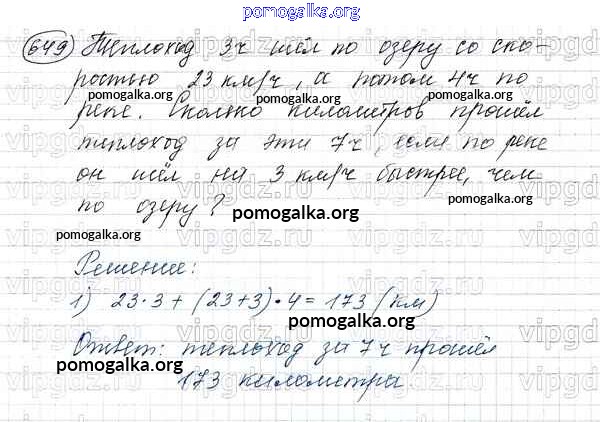 pomogalka.org
649 Теплоход 3ч шёл по озеру со ско-
ростью 23 км/ч, а потом 4ч по
pomogalka.org pomogalka.org
реке. Сколько километров прошёл
теплоход за эти 7ч, если по реке
он шёл на 3 км/ч быстрее, чем
по озеру?
pomogalka.org
pomogalka.org
Решение:
1) 23·3+(23+3)·4=173 (км)
pomogalka.org
Ответ: теплоход за 7ч прошёл
pomogalka.org
173 километра
vipgdz.ru